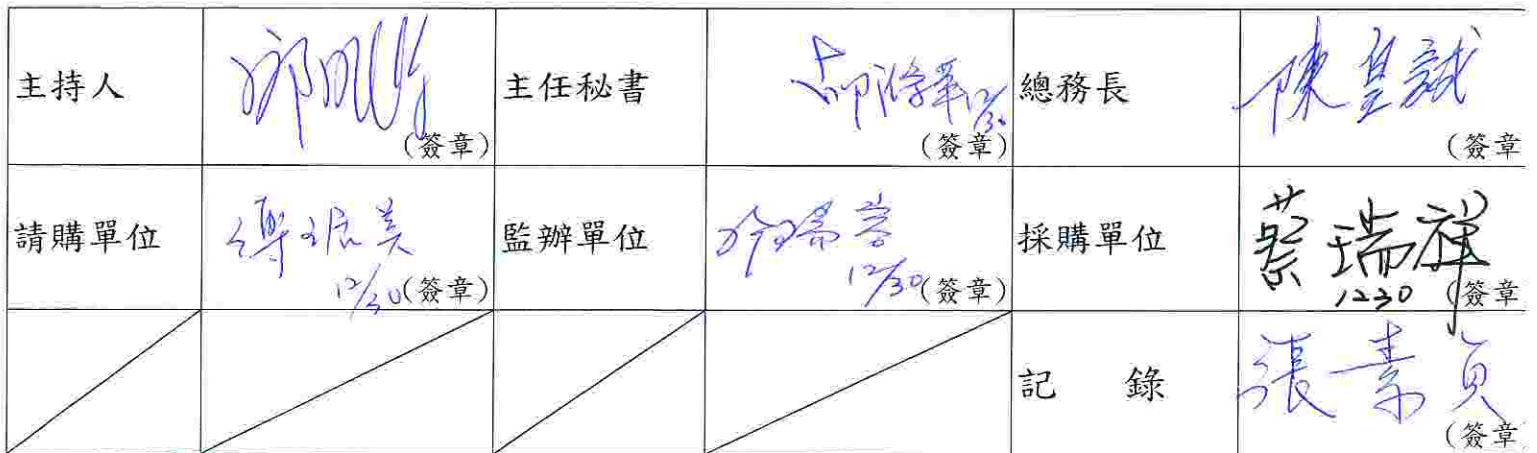 主持人 (簽章) 主任秘書 12/30 (簽章) 總務長 陳皇誠 (簽章
請購單位 12/30 (簽章) 監辦單位 12/30 (簽章) 採購單位 蔡瑞祥 1230 (簽章
記 錄 張素貞 (簽章